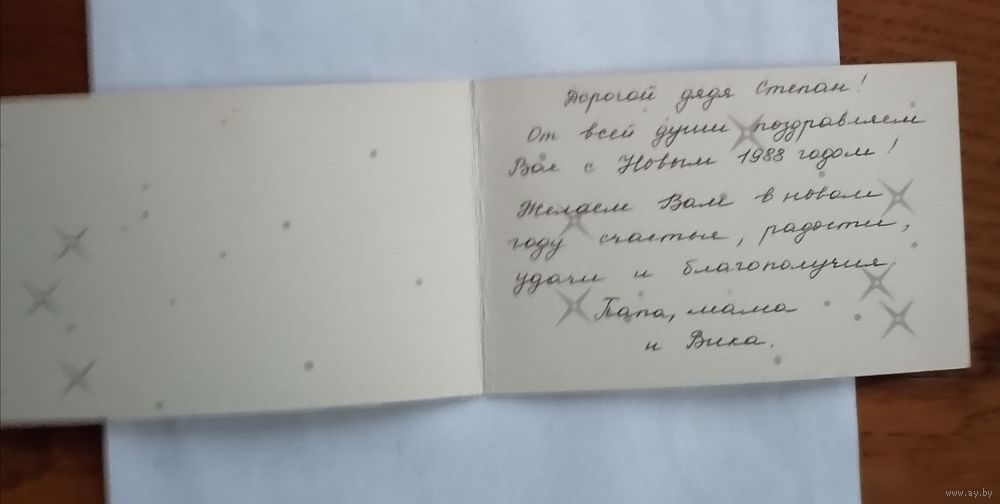 Дорогой дядя Степан!
От всей души поздравляем
Вас с Новым 1988 годом!
Желаем Вам в новом
году счастья, радости,
удачи и благополучия.
Папа, мама
и Вика.
www.ay.by